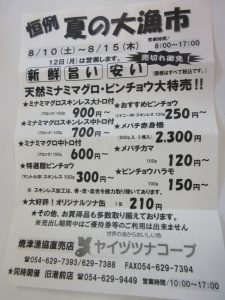 恒例 夏の大漁市
8/10(土)~8/15(木) 営業時間/8:00~17:00
12日(月)は営業します。 売切れ御免!
新鮮 旨い 安い (価格はすべて税込です。)
天然ミナミマグロ・ビンチョウ大特売!!
★ミナミマグロステンレス大トロ付 100g 900円~
★ミナミマグロステンレス中トロ付 100g 700円~
★ミナミマグロ中トロ付 100g 600円~
★特選脂ビンチョウ 100g 300円~
★おすすめビンチョウ 100g 250円~
★メバチ赤身柵 2,300円
★メバチカマ 100g 120円~
★ビンチョウハラモ 100g 150円~
※ステンレス加工は、骨・皮・血合を極力取り除いてあります。
★大好評!オリジナルツナ缶 1缶 210円
★その他、お買得品も多数取り揃えております。
※売り出し期間中はご優待券等のご利用は出来ません
世界の海からおいしい魚
焼津漁協直売店 ヤイヅツナコープ
054-629-7393/629-7388 FAX054-629-7394
★同時開催 旧港前店 054-629-9449 営業時間/10:00~17:00